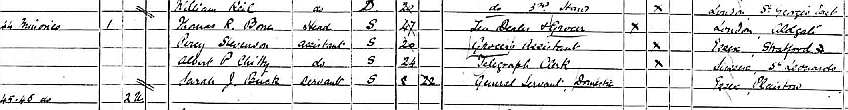 William Keil do S. 20 do 3rd Hand London St Georges East
44 Minories 1 Thomas R. Bone Head S 47 Tea Dealer & Grocer x London, Aldgate
Percy Stevenson assistant S 20 Grocers Assistant x Essex, Stratford
Albert P. Chitty do S 24 Telegraph Clerk x Sussex, St Leonards
Sarah J. servant S 22 General Servant, Domestic Essex, Plaistow
45-46 do